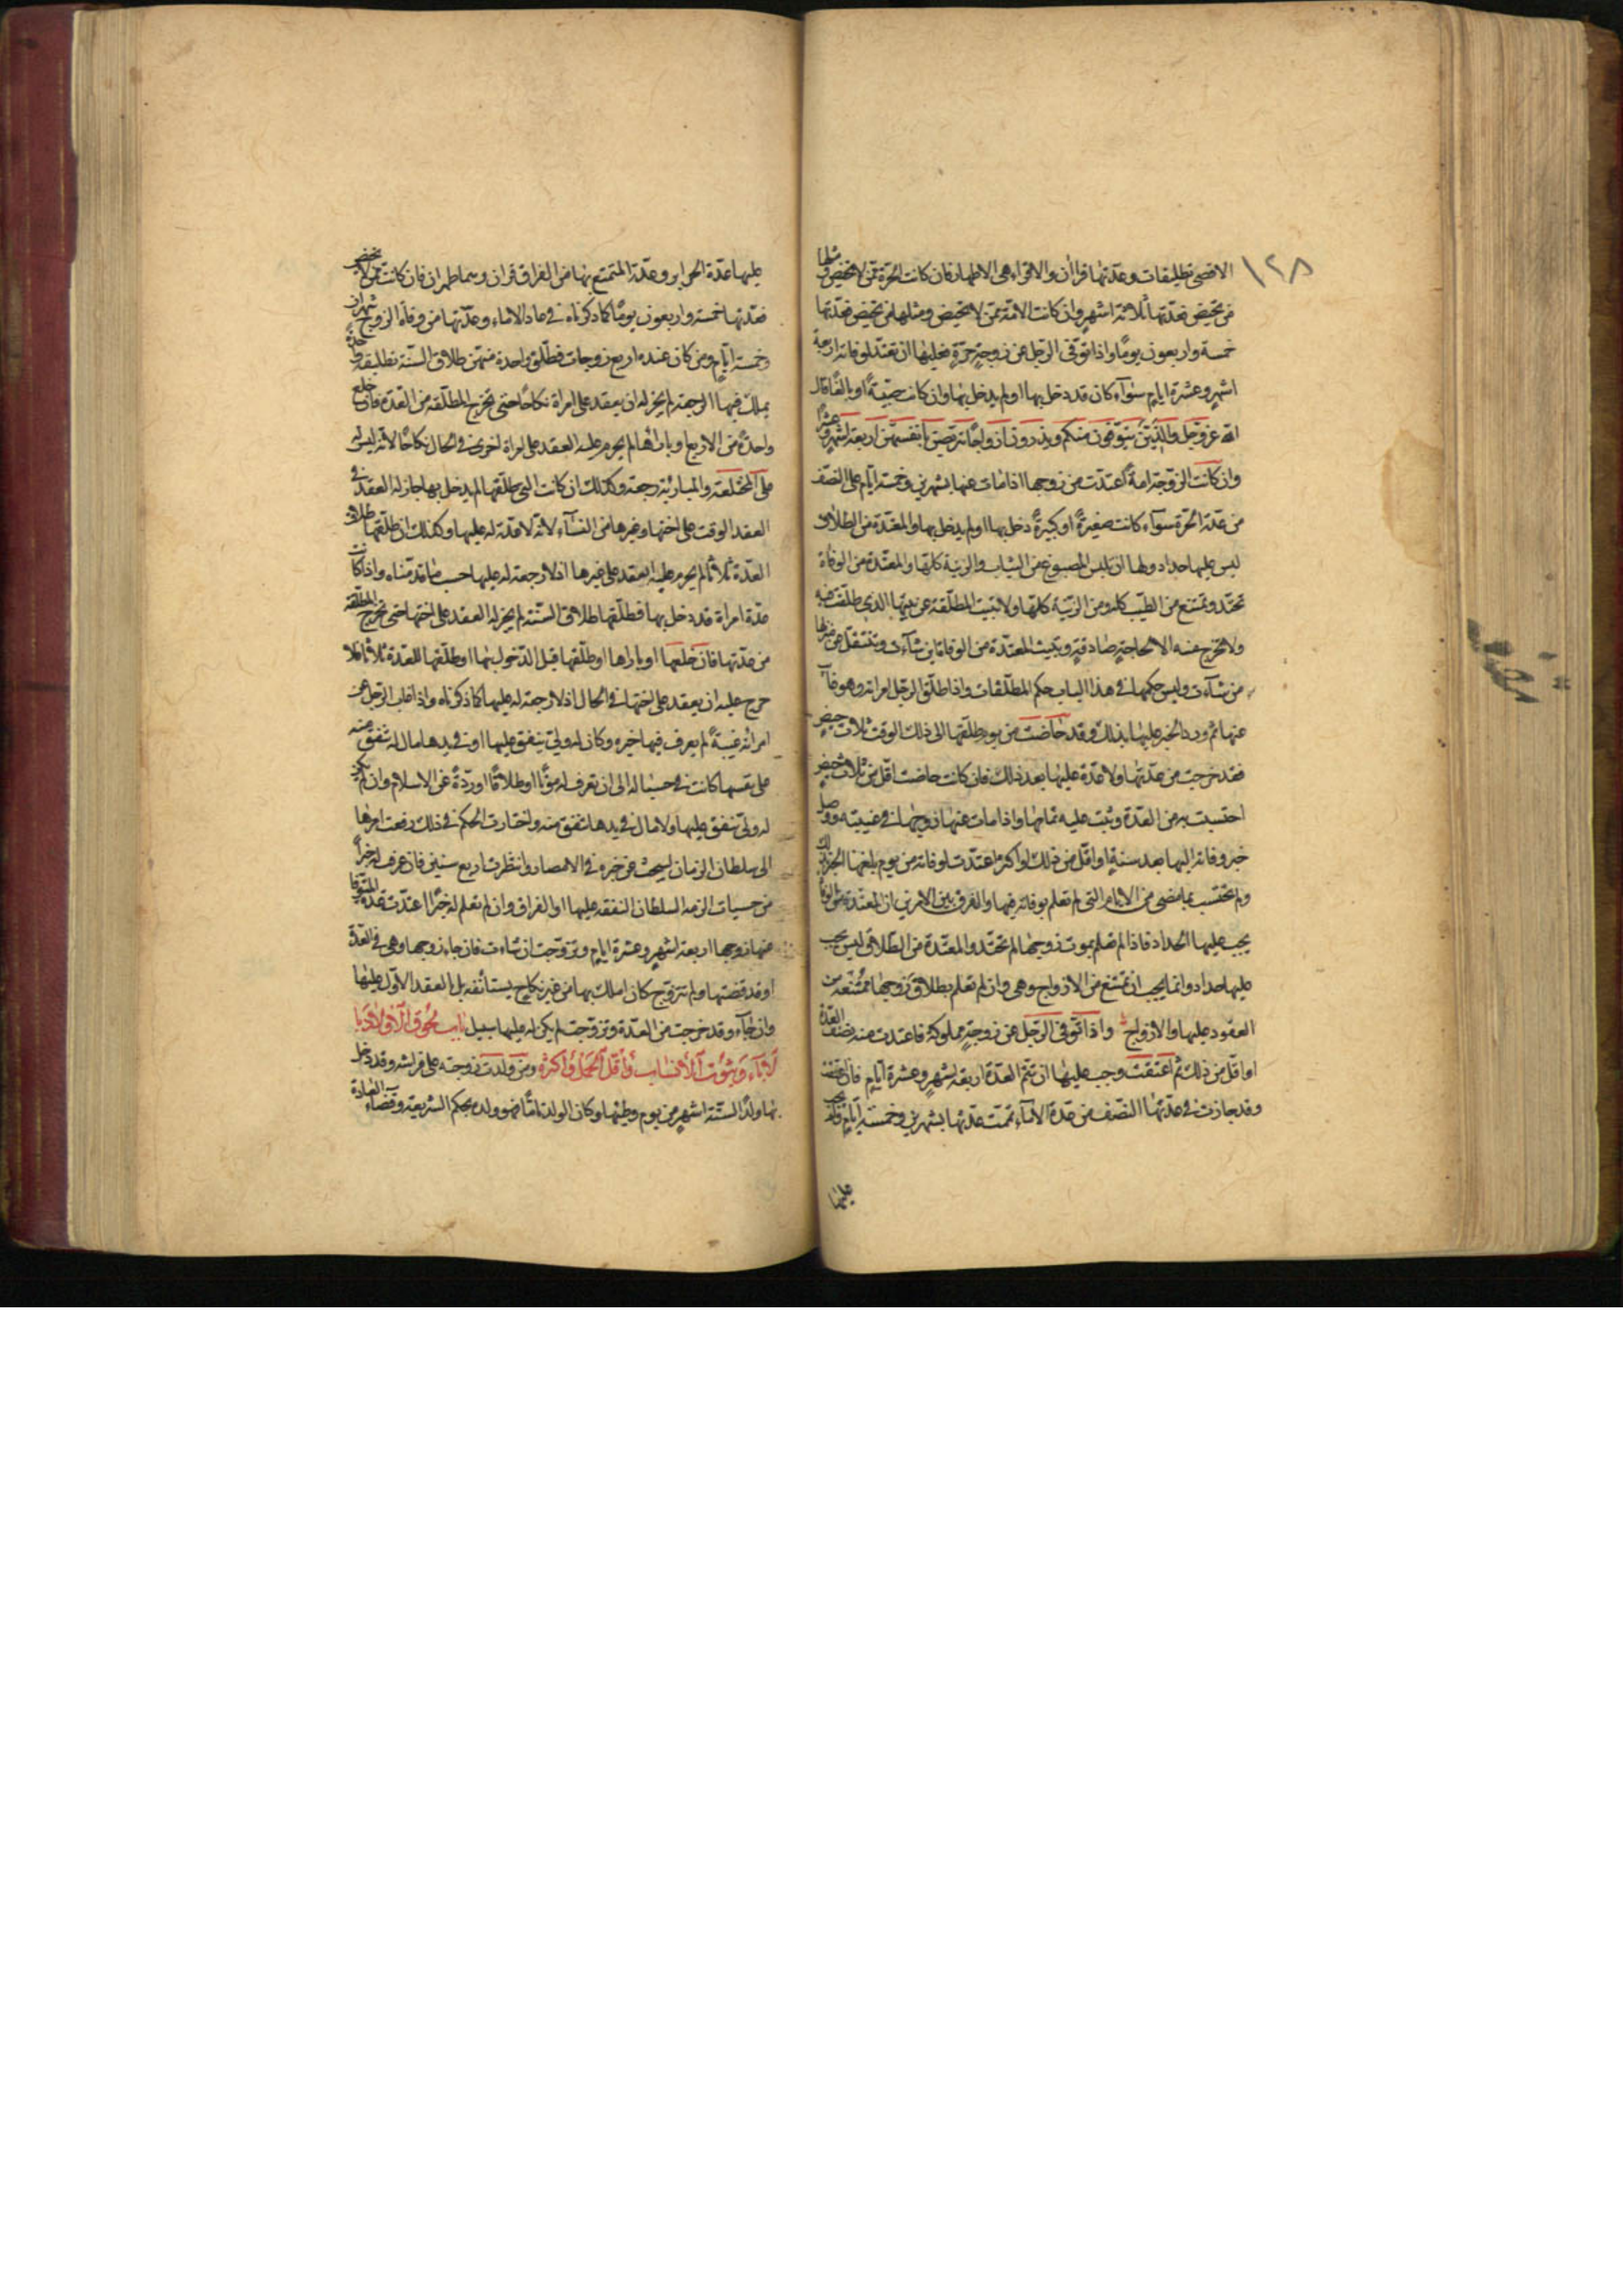 ١٢٨
الاقصى تطليقات وعدتها قرأن والاقراء هي الاطهار فان كانت الحرة ممن لا تحيض ومثلها
من تحيض فعدتها ثلاثة اشهر وان كانت الامة ممن لا تحيض ومثلها من تحيض فعدتها
خمسة واربعون يوما واذا توفى الرجل عن زوجة حرة فعليها ان تعتد لوفاته اربعة
اشهر وعشرة ايام سواء كان قد دخل بها او لم يدخل بها وان كانت صبية او بالغا قال
الله عز وجل والذين يتوفون منكم ويذرون ازواجا يتربصن بانفسهن اربعة اشهر وعشرا
وان كانت الزوجة امة اعتدت من زوجها اذا مات عنها بشهرين وخمسة ايام على النصف
من عدة الحرة سواء كانت صغيرة او كبيرة دخل بها او لم يدخل بها والمعتدة من الطلاق
ليس عليها حداد ولها ان تلبس المصبوغ من الثياب والزينة كلها والمعتدة من الوفاة
تحتد وتمتنع من الطيب كله ومن الزينة كلها ولا تبيت المطلقة عن بيتها الذي طلقت فيه
ولا تخرج منه الا لحاجة صادقة وتبيت المعتدة من الوفاة اين شاءت وتنتقل عن منزلها
متى شاءت وليس حكمها في هذا الباب حكم المطلقات واذا طلق الرجل امراته وهو غائب
عنها ثم ورد الخبر عليها بذلك وقد حاضت من يوم طلقها الى ذلك الوقت ثلاث حيض
فقد خرجت من عدتها ولا عدة عليها بعد ذلك فان كانت حاضت اقل من ثلاث حيض
احتسبت به من العدة وبنت عليه تمامها واذا مات عنها زوجها في غيبته ووصل
خبر وفاته اليها بعد سنة او اقل من ذلك او اكثر اعتدت لوفاته من يوم بلغها الخبر بذلك
ولم تحتسب بما مضى من الايام التي لم تعلم بوفاته فيها والفرق بين الامرين ان المعتدة من الوفاة
يجب عليها الحداد فاذا لم تعلم بموت زوجها لم تحتد والمعتدة من الطلاق ليس يجب
عليها حداد وانما يجب ان تمتنع من الازواج وهي وان لم تعلم بطلاق زوجها ممتنعة من
العقود عليها والازواج واذا توفى الرجل عن زوجة مملوكة فاعتدت منه نصف العدة
او اقل من ذلك ثم اعتقت وجب عليها ان تتم العدة اربعة اشهر وعشرة ايام فان عتقت
وقد جازت في عدتها النصف من عدة الاماء تممت عدتها بشهرين وخمسة ايام ولم يجب
عليها
عليها عدة الحراير وعدة المتمتع بها من الفراق قرآن وهما طهران فان كانت ممن لا تحيض
فعدتها خمسة واربعون يوما كما ذكرناه في عدد الاماء وعدتها من وفاة الزوج شهران
وخمسة ايام ومن كان عنده اربع زوجات فطلق واحدة منهن طلاق السنة تطليقة واحدة
يملك فيها الرجعة لم يجز له ان يعقد على امراة نكاحا حتى تخرج المطلقة من العدة فان خلع
واحدة من الاربع او باراها لم يحرم عليه العقد على امراة اخرى في الحال نكاحا لانه ليس له
على المختلعة والمبارئة رجعة وكذلك ان كانت التي طلقها لم يدخل بها جاز له العقد في
العقد الوقت على اختها وغيرها من النساء لانه لا عدة له عليها وكذلك ان طلقها طلاق
العدة ثلاثا لم يحرم عليه العقد على غيرها اذ لا رجعة له عليها حسب ما قدمناه واذا كانت
عدة امراة قد دخل بها فطلقها طلاق السنة لم يجز له العقد على اختها حتى تخرج المطلقة
من عدتها فان خلعها او باراها او طلقها قبل الدخول بها او طلقها للعدة ثلاثا فلا
حرج عليه ان يعقد على اختها في الحال اذ لا رجعة له عليها كما ذكرناه واذا غاب الرجل عن
امراته غيبة لم يعرف فيها خبره وكان له ولي ينفق عليها او في يدها مال له تنفق منه
على نفسها كانت في حباله الى ان تعرف له موتا او طلاقا او ردة عن الاسلام وان لم يكن
له ولي ينفق عليها ولا مال في يدها تنفق منه واختارت الحكم في ذلك رفعت امرها
الى سلطان الزمان ليبحث عن خبره في الامصار وانتظرت اربع سنين فان عرف له خبرا
من حسيات الزمه السلطان النفقة عليها او الفراق وان لم تعلم له خبرا اعتدت عدة المتوفا
عنها زوجها اربعة اشهر وعشرة ايام وتزوجت ان شاءت فان جاء زوجها وهي في العدة
او قد قضتها ولم تتزوج كان املك بها من غير نكاح يستأنفه بل بالعقد الاول عليها
وان جاء وقد خرجت من العدة وتزوجت لم يكن له عليها سبيل باب لحوق الاولاد با
لآباء وثبوت الانساب واقل الحمل واكثره ومن ولدت زوجته على فراشه وقد دخل
بها ولدا لستة اشهر من يوم وطيها وكان الولد تاما فهو ولده بحكم الشريعة وقضاء العادة